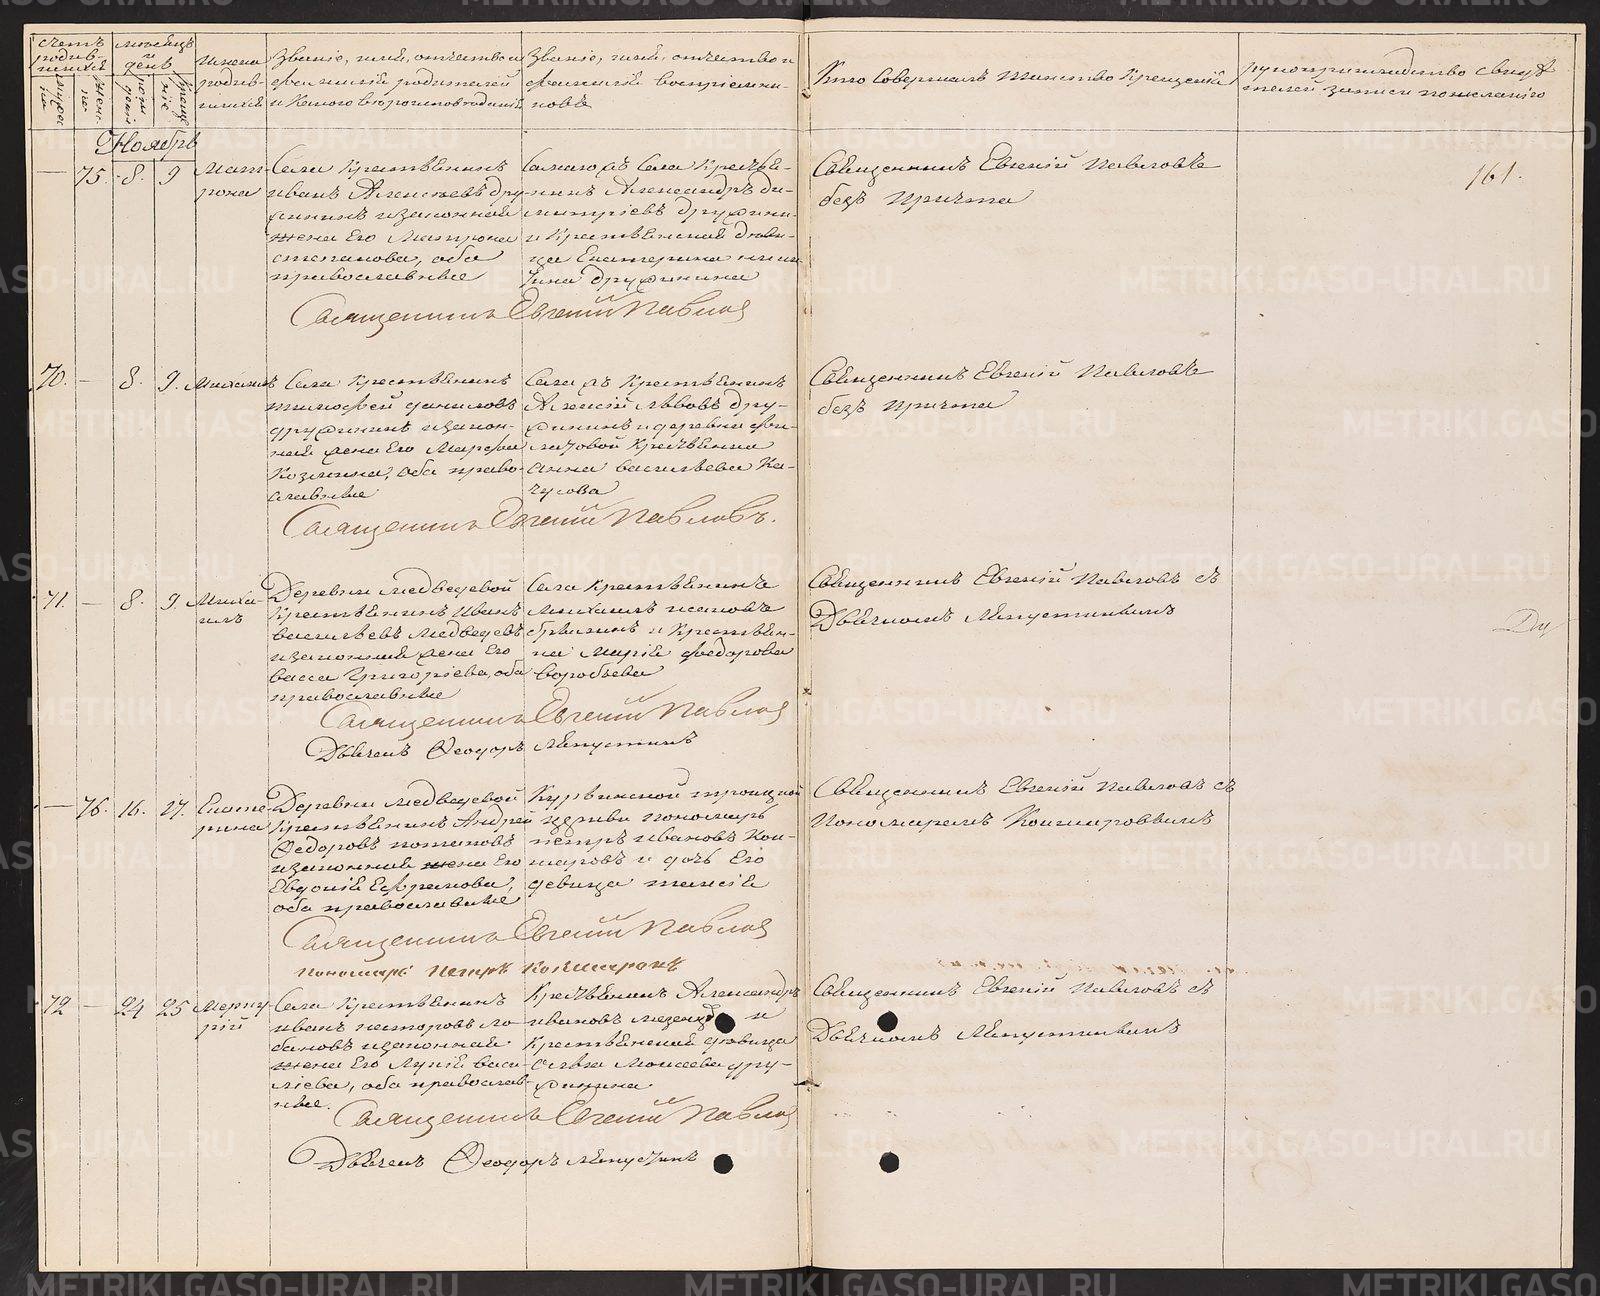 Счетъ родив-шихся
мѣсяцъ и день
Имена родив-шихся
Званіе, имя, отчество и фамилія родителей и какого вѣроисповѣданія
Званіе, имя, отчество и фамилія воспріемни-ковъ
Кто совершалъ таинство крещенія
рукоприкладство свидѣ-телей записи по желанію
Ноябрь
161.
— 75. 8. 9
Мат-
рона
Села Крестьянинъ
Иванъ Алексѣевъ Дру-
жининъ и законная
жена Его Матрона
Степанова, оба
православные
тогожъ Села Крестья-
нинъ Александръ Ди-
митріевъ Дружини-
и Крестьянская дѣви-
ца Екатерина
Дружинина
Священникъ Евгеній Павловъ
безъ причта
Священникъ Евгеній Павловъ
70. — 8. 9. Михаилъ
Села Крестьянинъ
Тимофей Даниловъ
Дружининъ и закон-
ная жена Его Марфа
Козмина, оба право-
славные
Села жъ Крестьянинъ
Алексій Львовъ Дру-
жининъ и деревни
Крестьянка
Анна Васильева Ка-
чусова
Священникъ Евгеній Павловъ
безъ причта
Священникъ Евгеній Павловъ.
71. — 8. 9
Миха-
илъ
Деревни Медведевой
Крестьянинъ Иванъ
Васильевъ Медведевъ
и законная жена Его
Васса Григоріева, оба
православные
Села Крестьянинъ
Михаилъ
и Крестьян-
ка Марія Федорова
Воробьева
Священникъ Евгеній Павловъ съ
Дьячкомъ Лепустинымъ
Священникъ Евгеній Павловъ
Дьячекъ Феодоръ Лепустинъ
— 76. 16. 17.
Екате-
рина
Деревни Медведевой
Крестьянинъ Андрей
Федоровъ Потаповъ
и законная жена Его
Евдокія Ефремова,
оба православные
Троицкой
церкви пономарь
Петръ Ивановъ Кош-
маровъ и дочь Его
девица Таисія
Священникъ Евгеній Павловъ съ
Пономаремъ Кошмаровымъ
Священникъ Евгеній Павловъ
пономарь Петръ Кошмаровъ
72 — 24 25
Мерку-
рій
Села Крестьянинъ
Иванъ Несторовъ Ло-
бановъ и законная
жена Его Лукія Васи-
ліева, оба православ-
ные.
Крестьянинъ Александръ
Ивановъ и
Крестьянская девица
Ольга Моисеева Дру-
жинина.
Священникъ Евгеній Павловъ съ
Дьячкомъ Лепустинымъ
Священникъ Евгеній Павловъ
Дьячекъ Феодоръ Лепустинъ
METRIKI.GASO-URAL.RU